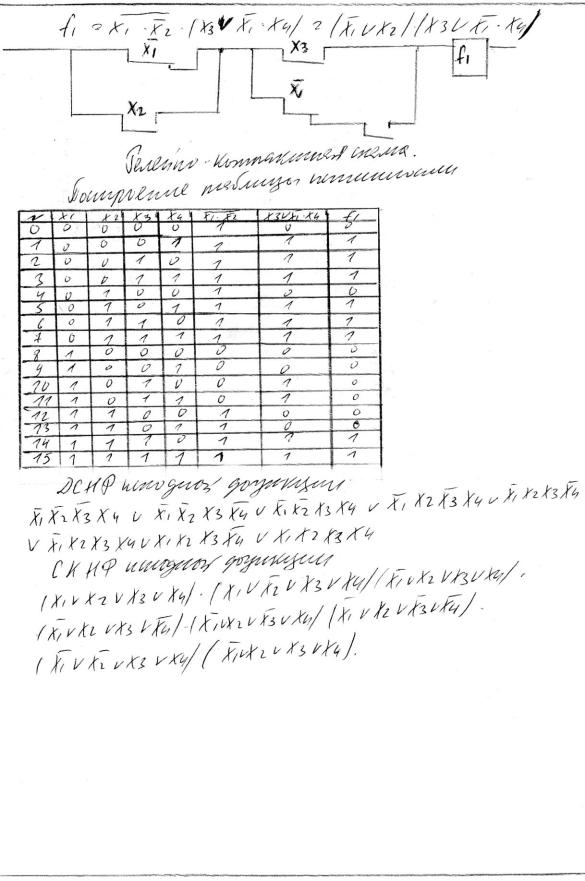 f₁ = x̅₁·x̅₂ · (x₃ ∨ x̄₁ · x₄) = (x̄₁ ∨ x₂)(x₃ ∨ x̄₁ · x₄)
x̄₁ x₃ f₁
x₂ x̄₁
Релейно-контактная схема.
Построение таблицы истинности
N x₁ x₂ x₃ x₄ x₁·x̄₂ x₃∨x̄₁·x₄ f₁
0 0 0 0 0 1 0 0
1 0 0 0 1 1 1 1
2 0 0 1 0 1 1 1
3 0 0 1 1 1 1 1
4 0 1 0 0 1 0 0
5 0 1 0 1 1 1 1
6 0 1 1 0 1 1 1
7 0 1 1 1 1 1 1
8 1 0 0 0 0 0 0
9 1 0 0 1 0 0 0
10 1 0 1 0 0 1 0
11 1 0 1 1 0 1 0
12 1 1 0 0 1 0 0
13 1 1 0 1 1 0 0
14 1 1 1 0 1 1 1
15 1 1 1 1 1 1 1
ДСНФ исходной функции
x̄₁x̄₂x̄₃x₄ ∨ x̄₁x̄₂x₃x̄₄ ∨ x̄₁x̄₂x₃x₄ ∨ x̄₁x₂x̄₃x₄ ∨ x̄₁x₂x₃x̄₄
∨ x̄₁x₂x₃x₄ ∨ x₁x₂x₃x̄₄ ∨ x₁x₂x₃x₄
СКНФ исходной функции
(x₁∨x₂∨x₃∨x₄)·(x₁∨x̄₂∨x₃∨x₄)(x̄₁∨x₂∨x₃∨x₄)·
(x̄₁∨x₂∨x₃∨x̄₄)·(x̄₁∨x₂∨x̄₃∨x₄)(x̄₁∨x₂∨x̄₃∨x̄₄)·
(x̄₁∨x̄₂∨x₃∨x₄)(x̄₁∨x̄₂∨x₃∨x̄₄).